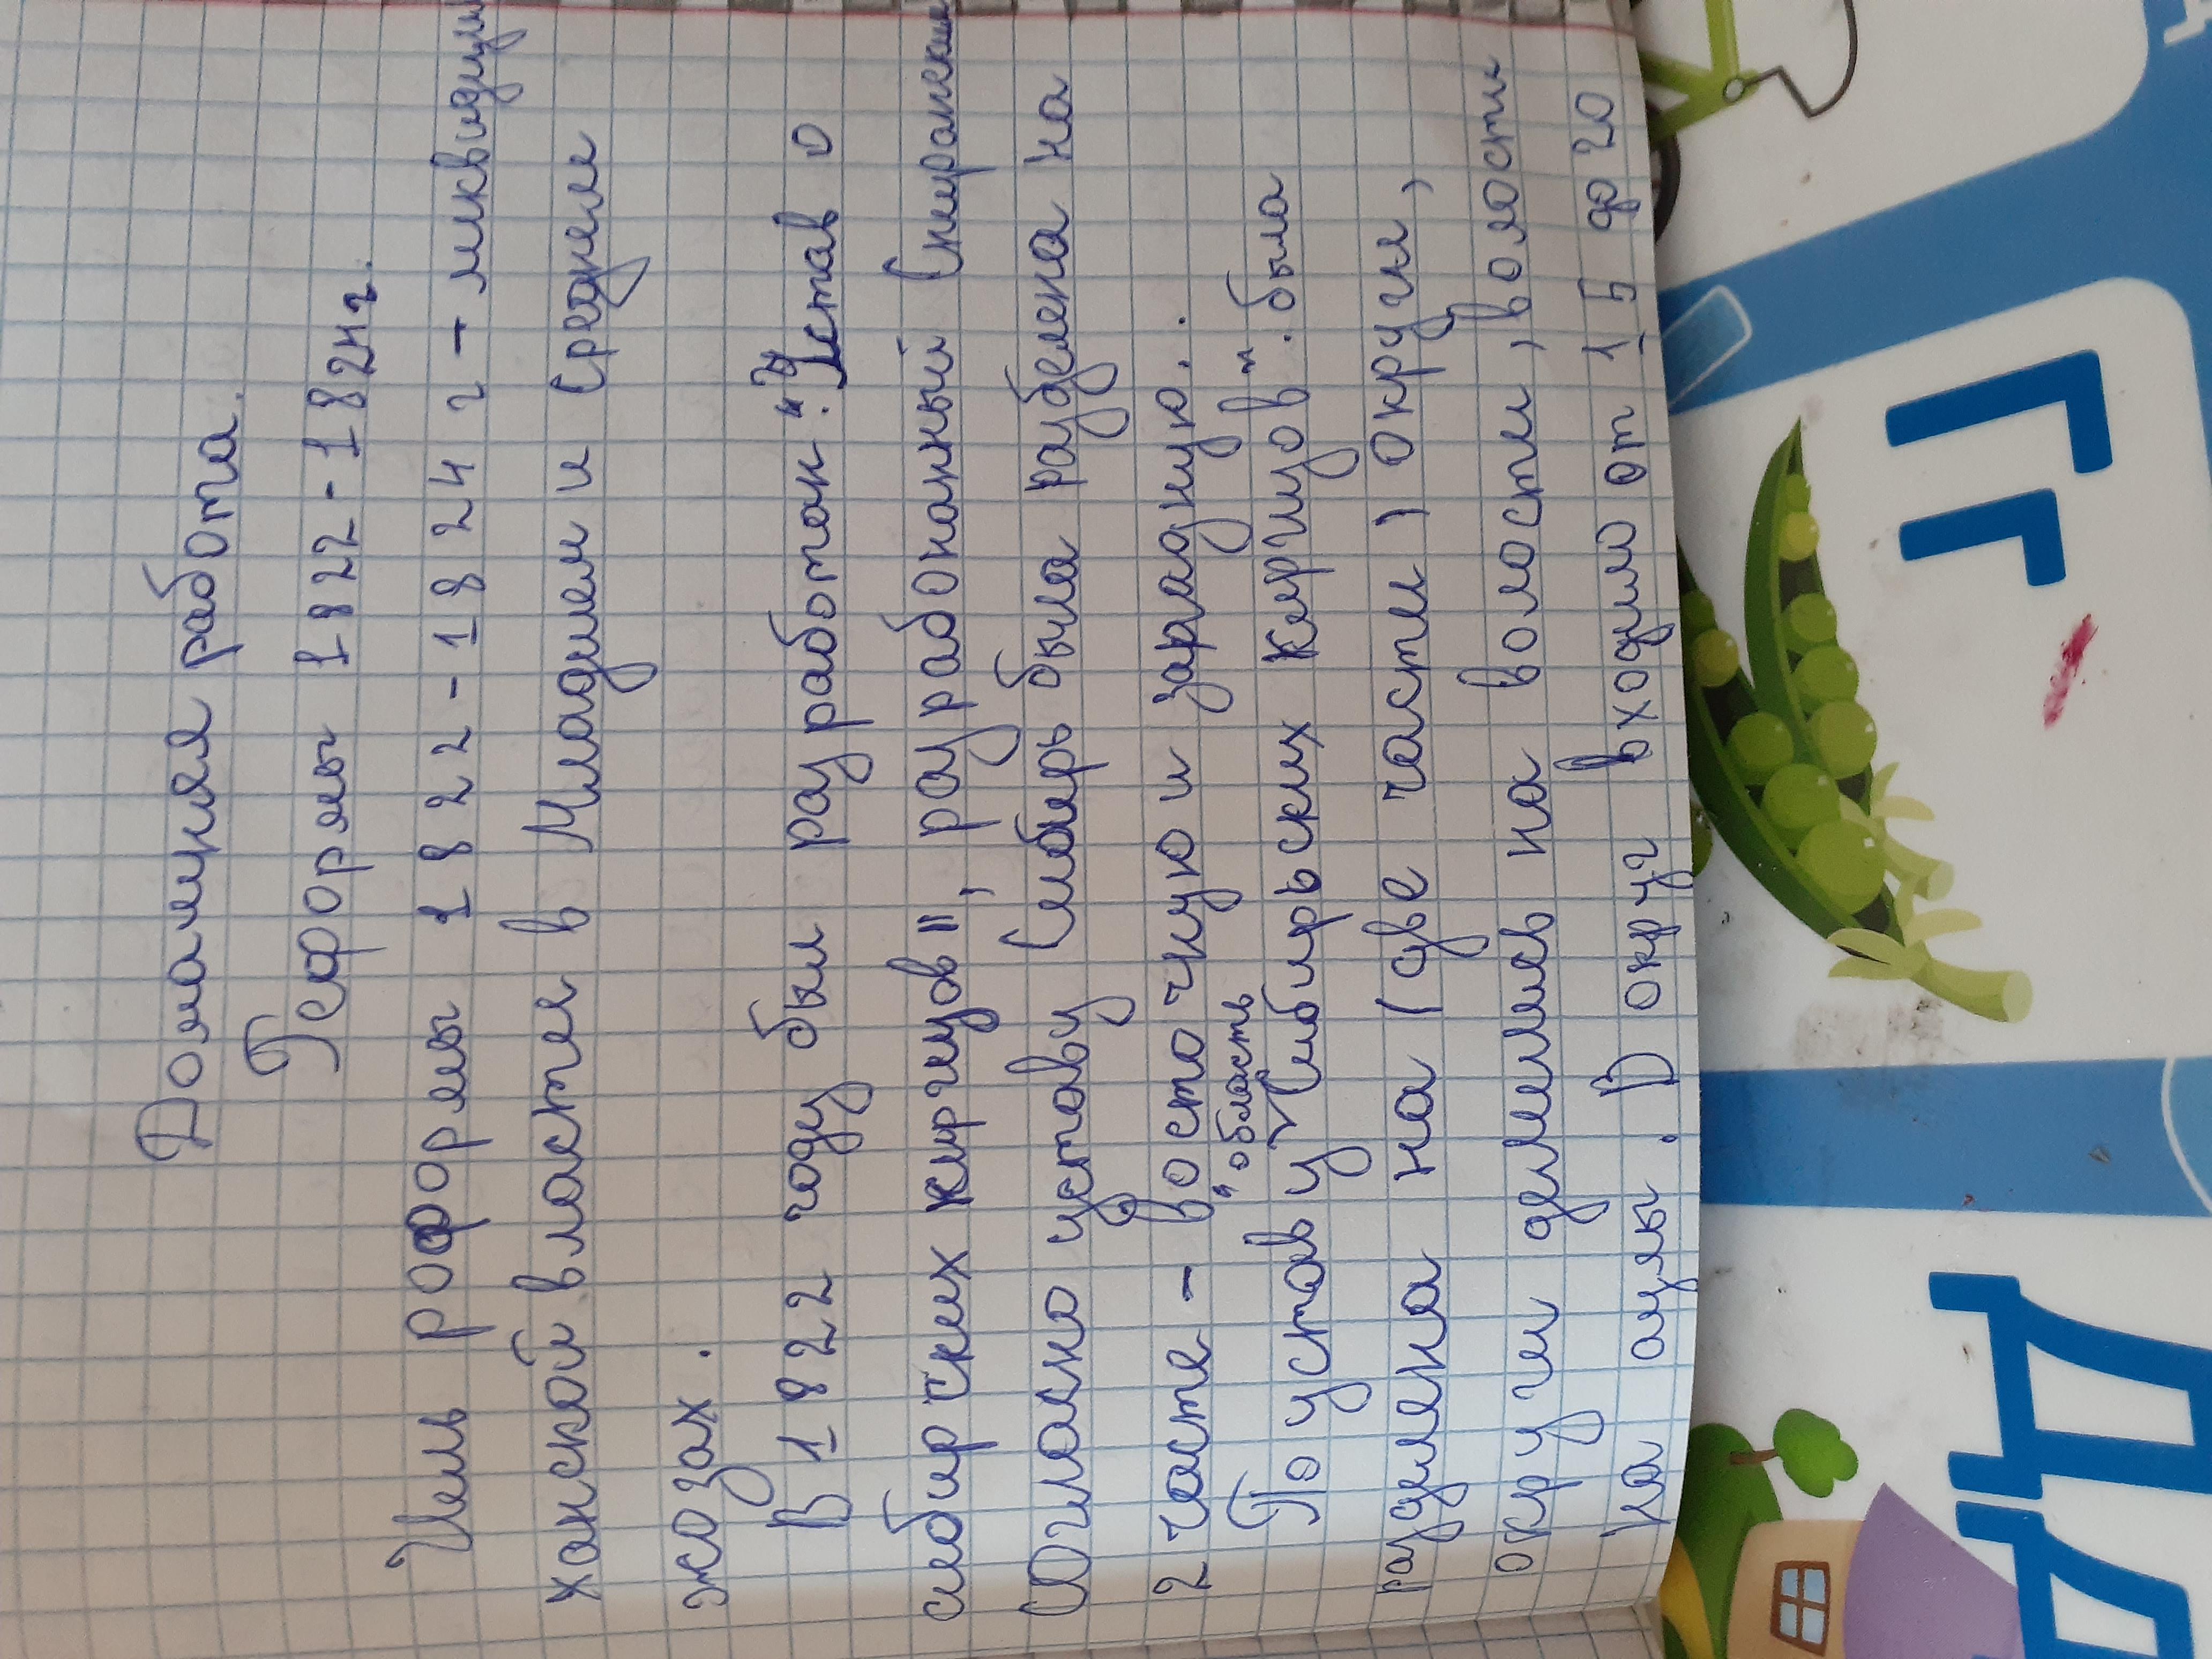 Домашняя работа.
Реформы 1822-1824г.
Цель роформы 1822-1824г - ликвидции
ханской власти в Младшем и Среднем
жозах.
В 1822 году был разработан "Устав о
сибирских киргизов", разработанный Сперанским
Согласно уставу Сибирь была разделена на
2 части - Восточную и западную.
По уставу "область Сибирьских Киргизов" была
разделена на (две части) округи,
округи делились на волости, волости
на аулы. В округ входило от 15 до 20
Гг
Дд